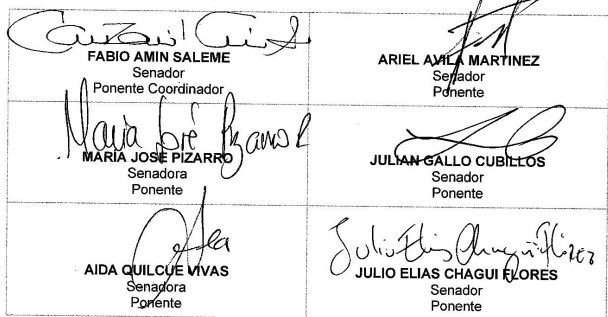 FABIO AMIN SALEME
Senador
Ponente Coordinador
ARIEL AVILA MARTINEZ
Senador
Ponente
Maria José Pizarro R
MARIA JOSE PIZARRO
Senadora
Ponente
JULIAN GALLO CUBILLOS
Senador
Ponente
AIDA QUILCUE VIVAS
Senadora
Ponente
Julio Elias Chagüi Flórez
JULIO ELIAS CHAGUI FLORES
Senador
Ponente